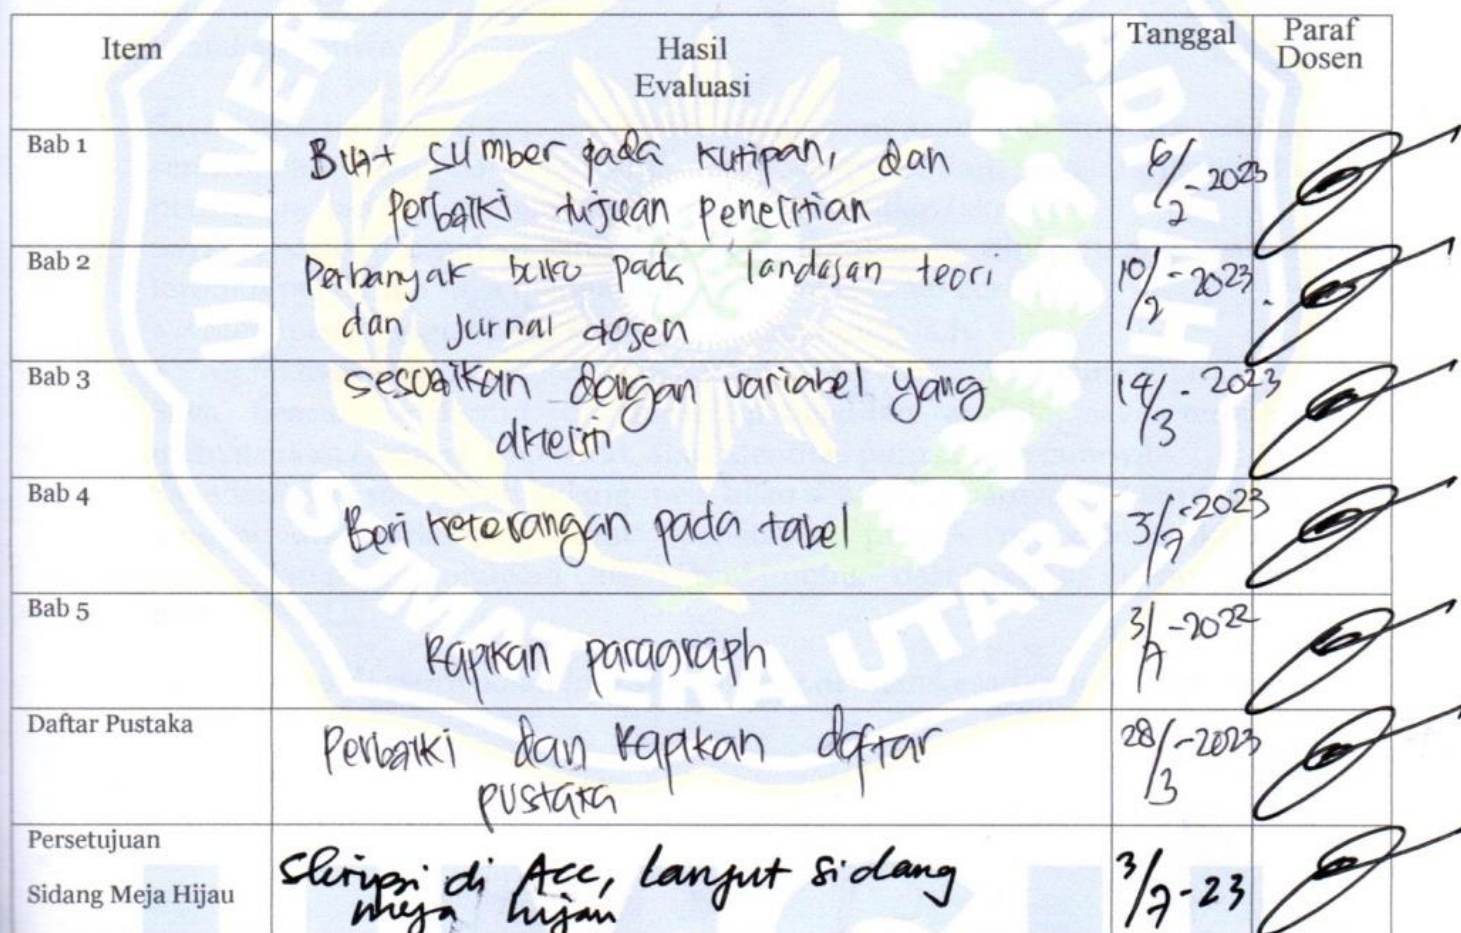 Item
Hasil
Evaluasi
Tanggal
Paraf
Dosen
Bab 1
Buat sumber pada kutipan, dan
perbaiki tujuan penelitian
6/2-2023
Bab 2
Perbanyak buku pada landasan teori
dan jurnal dosen
10/2-2023
Bab 3
sesuaikan dengan variabel yang
diteliti
14/3-2023
Bab 4
Beri keterangan pada tabel
3/7-2023
Bab 5
Rapikan paragraph
3/7-2022
Daftar Pustaka
Perbaiki dan Rapikan daftar
pustaka
28/3-2023
Persetujuan
Sidang Meja Hijau
Skripsi di Acc, Lanjut sidang
meja hijau
3/7-23
SUMATERA UTARA